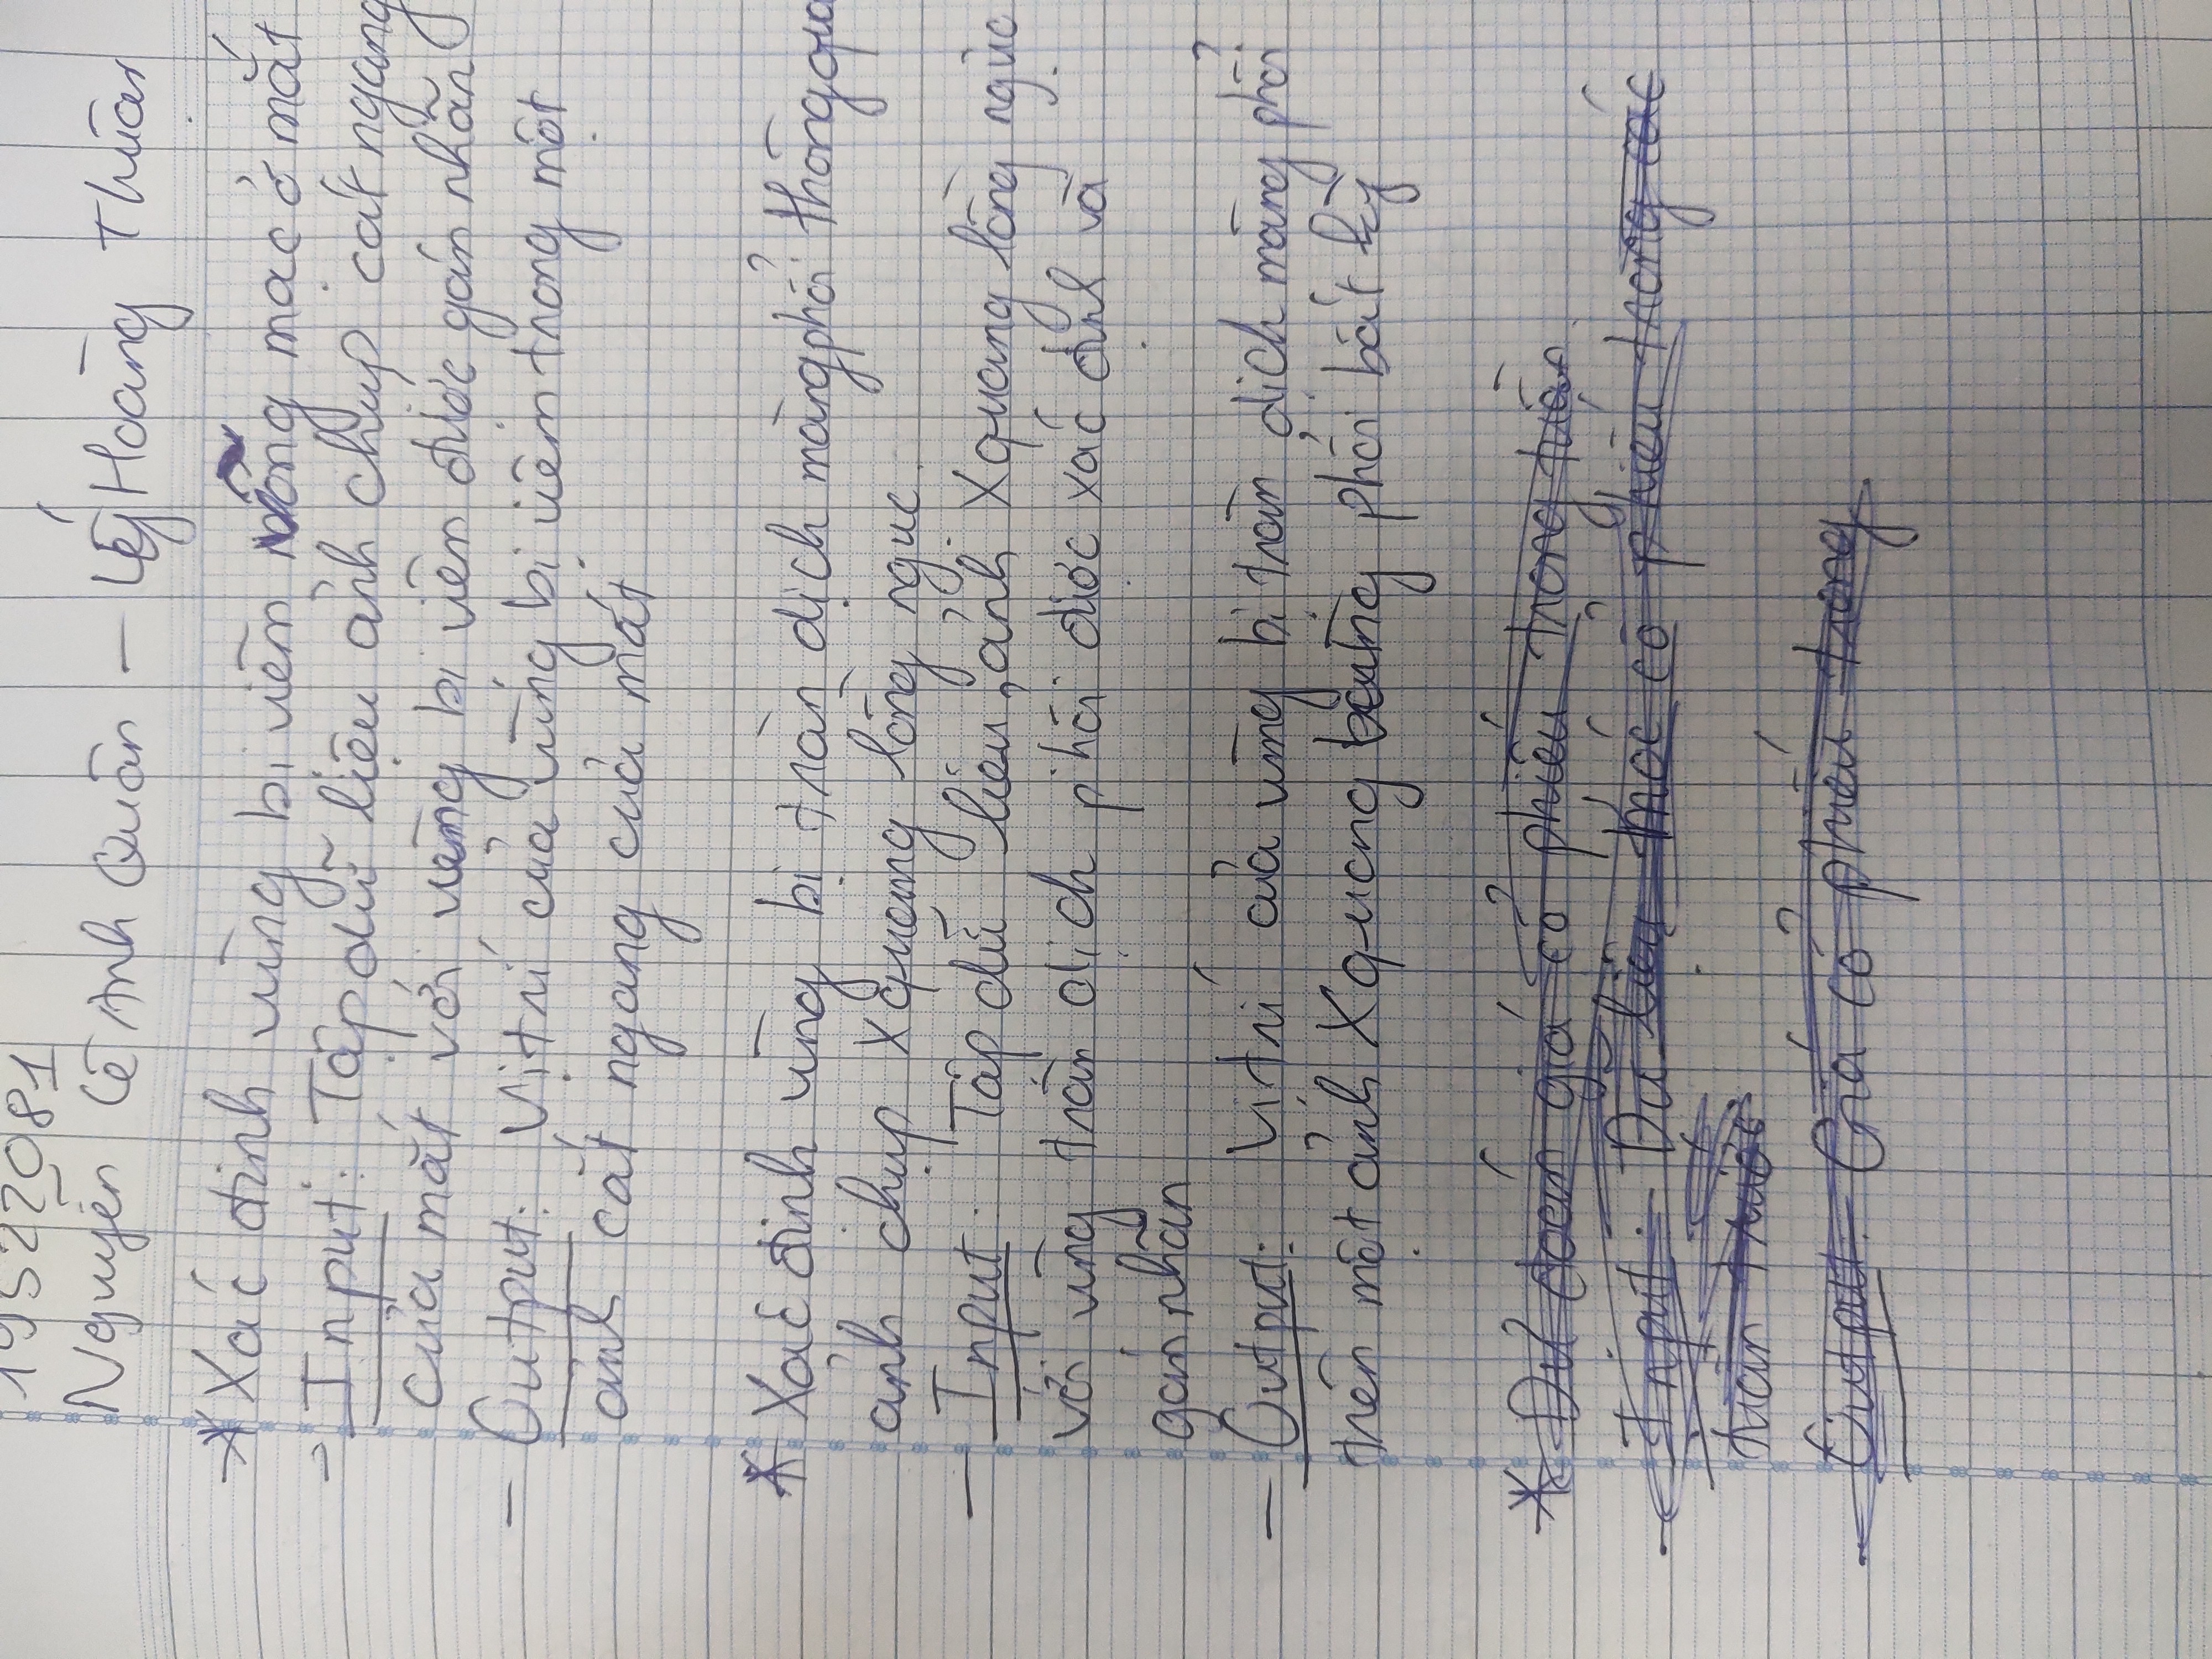 19522081
Nguyễn Lê Anh Quân - Lý Hoàng Thuận
* Xác định vùng bị viêm võng mạc ở mắt
- Input: Tập dữ liệu ảnh chụp cắt ngang
của mắt với vùng bị viêm được gán nhãn
- Output: Vị trí của vùng bị viêm trong một
ảnh cắt ngang của mắt
* Xác định vùng bị tràn dịch màng phổi thông qua
ảnh chụp X quang lồng ngực.
- Input: Tập dữ liệu ảnh X quang lồng ngực
với vùng tràn dịch phổi được xác định và
gán nhãn
- Output: Vị trí của vùng bị tràn dịch màng phổi
trên một ảnh X quang phổi bất kỳ
* Dự đoán giá cổ phiếu trong tuần
- Input: Dữ liệu cổ phiếu trong các
tuần trước
- Output: Giá cổ phiếu trong